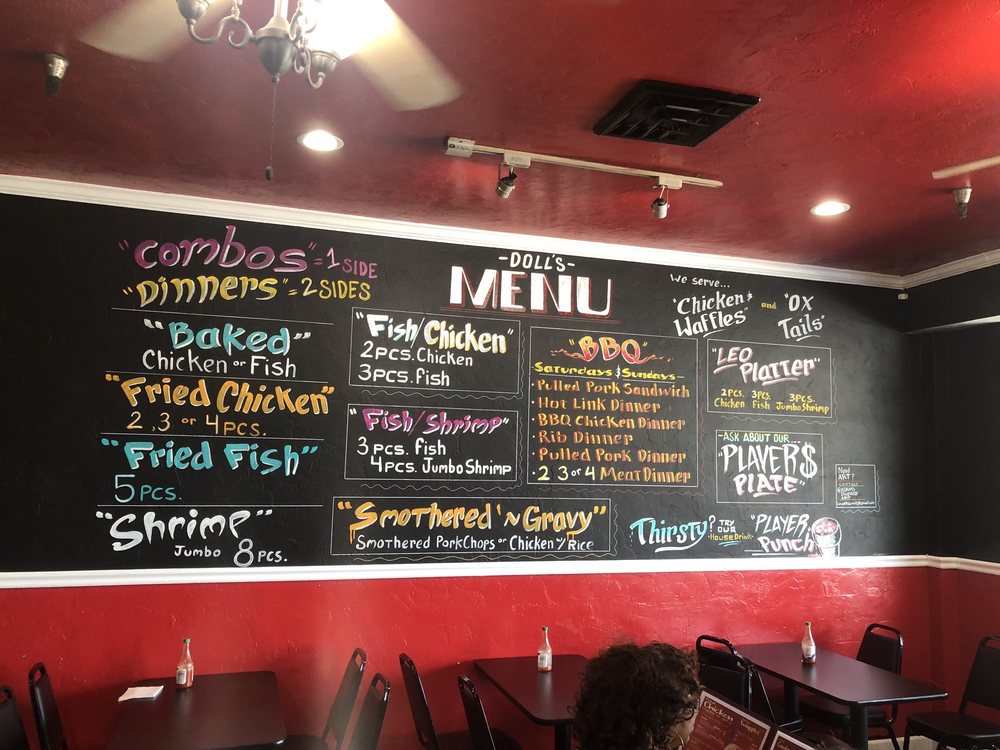 "Combos" = 1 SIDE
"Dinners" = 2 SIDES
"Baked"
Chicken or Fish
"Fried Chicken"
2, 3 or 4 PCS.
"Fried Fish"
5 PCS.
"Shrimp"
Jumbo 8 PCS.
-DOLL'S-
MENU
"Fish/Chicken"
2 PCS. Chicken
3 PCS. Fish
"Fish/Shrimp"
3 PCS. Fish
4 PCS. Jumbo Shrimp
"Smothered 'N Gravy"
Smothered Pork Chops or Chicken w/ Rice
"BBQ"
Saturdays & Sundays
· Pulled Pork Sandwich
· Hot Link Dinner
· BBQ Chicken Dinner
· Rib Dinner
· Pulled Pork Dinner
· 2 3 or 4 Meat Dinner
We serve...
"Chicken & Waffles" and "OX Tails"
"LEO Platter"
2 PCS. Chicken 3 PCS. Fish 3 PCS. Jumbo Shrimp
-ASK ABOUT OUR...
"PLAYER$
PLATE"
Need
ART?
Thirsty? TRY OUR -House Drink- "PLAYER Punch"
Chicken